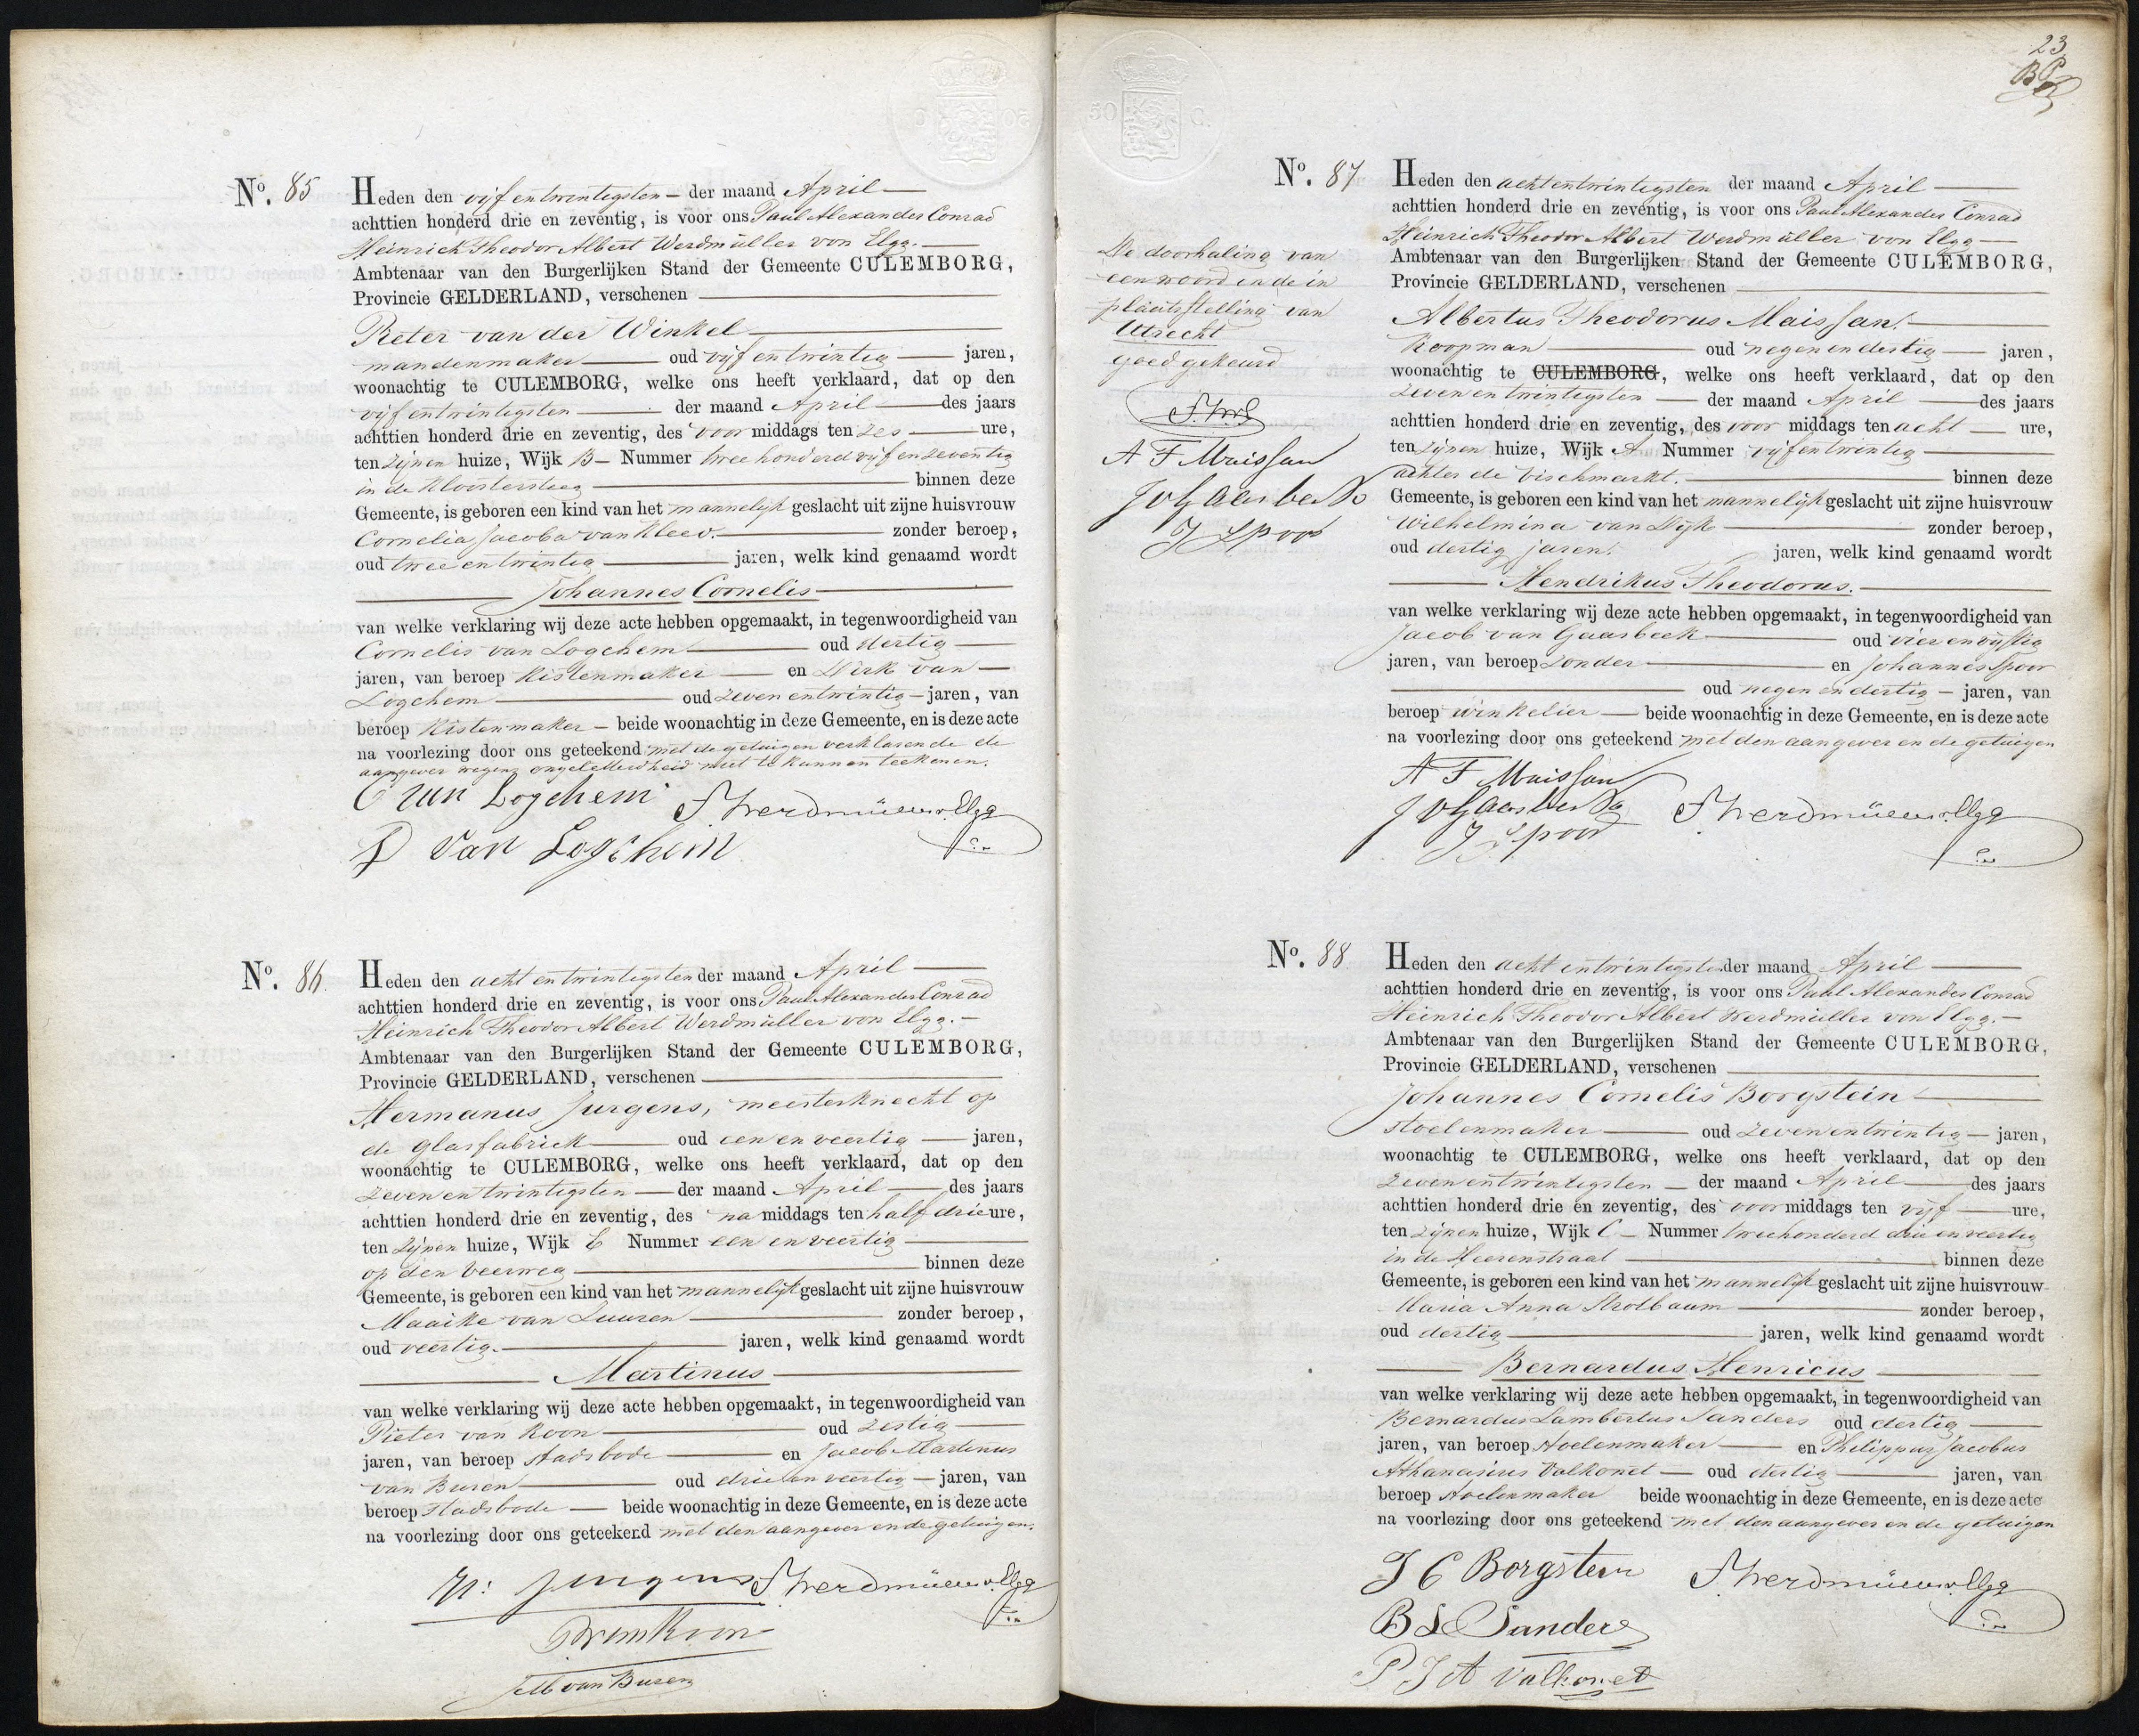 No. 85
Heden den vijf en twintigsten der maand April
achttien honderd drie en zeventig, is voor ons Paul Alexander Conrad
Heinrich Theodor Albert Werdmüller von Elgg.
Ambtenaar van den Burgerlijken Stand der Gemeente CULEMBORG,
Provincie GELDERLAND, verschenen
Pieter van der Winkel
mandenmaker oud vijf en twintig jaren,
woonachtig te CULEMBORG, welke ons heeft verklaard, dat op den
vijf en twintigsten der maand April des jaars
achttien honderd drie en zeventig, des voor middags ten zes ure,
ten zijnen huize, Wijk B Nummer twee honderd vijf en zeventig
in de Kloostersteeg binnen deze
Gemeente, is geboren een kind van het mannelijk geslacht uit zijne huisvrouw
Cornelia Jacoba van Kleev. zonder beroep,
oud twee en twintig jaren, welk kind genaamd wordt
Johannes Cornelis
van welke verklaring wij deze acte hebben opgemaakt, in tegenwoordigheid van
Cornelis van Logchem oud dertig
jaren, van beroep Kistenmaker en Dirk van
Logchem oud zeven en twintig jaren, van
beroep Kistenmaker beide woonachtig in deze Gemeente, en is deze acte
na voorlezing door ons geteekend met de getuigen verklarende de
aangever wegens ongeletterdheid niet te kunnen teekenen.
C van Logchem
D van Logchem
No. 86.
Heden den acht en twintigsten der maand April
achttien honderd drie en zeventig, is voor ons Paul Alexander Conrad
Heinrich Theodor Albert Werdmüller von Elgg.
Ambtenaar van den Burgerlijken Stand der Gemeente CULEMBORG,
Provincie GELDERLAND, verschenen
Hermanus Jurgens, meesterknecht op
de glasfabriek oud een en veertig jaren,
woonachtig te CULEMBORG, welke ons heeft verklaard, dat op den
zeven en twintigsten der maand April des jaars
achttien honderd drie en zeventig, des na middags ten half drie ure,
ten zijnen huize, Wijk E Nummer een en veertig
op den Veerweg binnen deze
Gemeente, is geboren een kind van het mannelijk geslacht uit zijne huisvrouw
Maaike van Luuren zonder beroep,
oud veertig. jaren, welk kind genaamd wordt
Martinus
van welke verklaring wij deze acte hebben opgemaakt, in tegenwoordigheid van
Pieter van Koon oud zestig
jaren, van beroep stadsbode en Jacob Martinus
van Buren oud drie en veertig jaren, van
beroep stadsbode beide woonachtig in deze Gemeente, en is deze acte
na voorlezing door ons geteekend met den aangever en de getuigen.
H: Jurgens
P van Koon
JM van Buren
23
No. 87
Heden den acht en twintigsten der maand April
achttien honderd drie en zeventig, is voor ons Paul Alexander Conrad
Heinrich Theodor Albert Werdmüller von Elgg
Ambtenaar van den Burgerlijken Stand der Gemeente CULEMBORG,
Provincie GELDERLAND, verschenen
Albertus Theodorus Maissan.
Koopman oud negen en dertig jaren,
woonachtig te CULEMBORG, welke ons heeft verklaard, dat op den
zeven en twintigsten der maand April des jaars
achttien honderd drie en zeventig, des voor middags ten acht ure,
ten zijnen huize, Wijk A Nummer vijf en twintig
achter de vischmarkt. binnen deze
Gemeente, is geboren een kind van het mannelijk geslacht uit zijne huisvrouw
Wilhelmina van Dijk zonder beroep,
oud dertig jaren. jaren, welk kind genaamd wordt
Hendrikus Theodorus.
van welke verklaring wij deze acte hebben opgemaakt, in tegenwoordigheid van
Jacob van Gaasbeek oud vier en vijftig
jaren, van beroep zonder en Johannes Spoor
oud negen en dertig jaren, van
beroep winkelier beide woonachtig in deze Gemeente, en is deze acte
na voorlezing door ons geteekend met den aangever en de getuigen
A T Maissan
J v Gaasbeek
J Spoor
De doorhaling van
een woord en de in
plaatsstelling van
Utrecht
goed gekeurd
A T Maissan
J v Gaasbeek
J Spoor
No. 88
Heden den acht en twintigsten der maand April
achttien honderd drie en zeventig, is voor ons Paul Alexander Conrad
Heinrich Theodor Albert Werdmüller von Elgg.
Ambtenaar van den Burgerlijken Stand der Gemeente CULEMBORG,
Provincie GELDERLAND, verschenen
Johannes Cornelis Borgstein
stoelenmaker oud zeven en twintig jaren,
woonachtig te CULEMBORG, welke ons heeft verklaard, dat op den
zeven en twintigsten der maand April des jaars
achttien honderd drie en zeventig, des voor middags ten vijf ure,
ten zijnen huize, Wijk C Nummer twee honderd drie en veertig
in de Heerenstraat binnen deze
Gemeente, is geboren een kind van het mannelijk geslacht uit zijne huisvrouw
Maria Anna Strotbaum zonder beroep,
oud dertig jaren, welk kind genaamd wordt
Bernardus Henricus
van welke verklaring wij deze acte hebben opgemaakt, in tegenwoordigheid van
Bernardus Lambertus Sanders oud dertig
jaren, van beroep stoelenmaker en Philippus Jacobus
Athanasius Valkonet oud dertig jaren, van
beroep stoelenmaker beide woonachtig in deze Gemeente, en is deze acte
na voorlezing door ons geteekend met den aangever en de getuigen
J C Borgstein
B L Sanders
P J A Valkonet